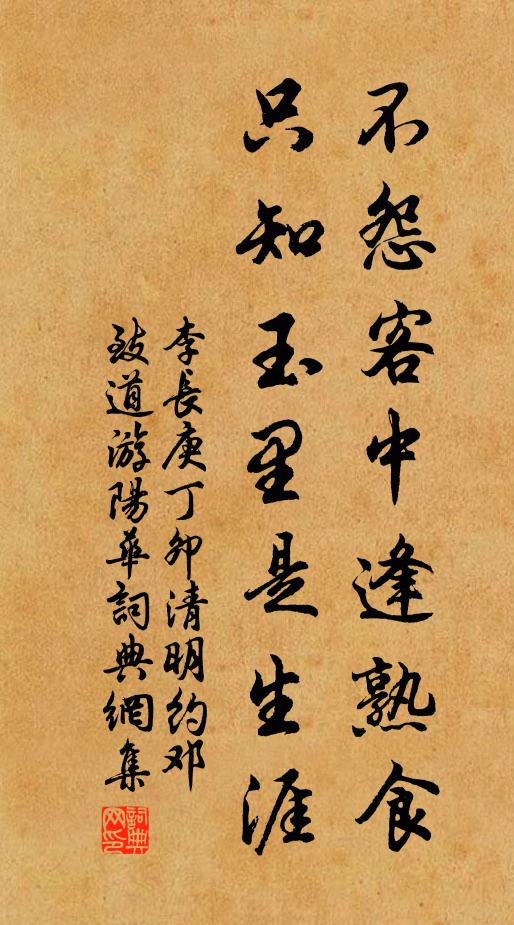 不怨客中逢熟食
只知玉里是生涯
李長庚丁卯清明約邓
致道游陽華詞典網集
詞典网印